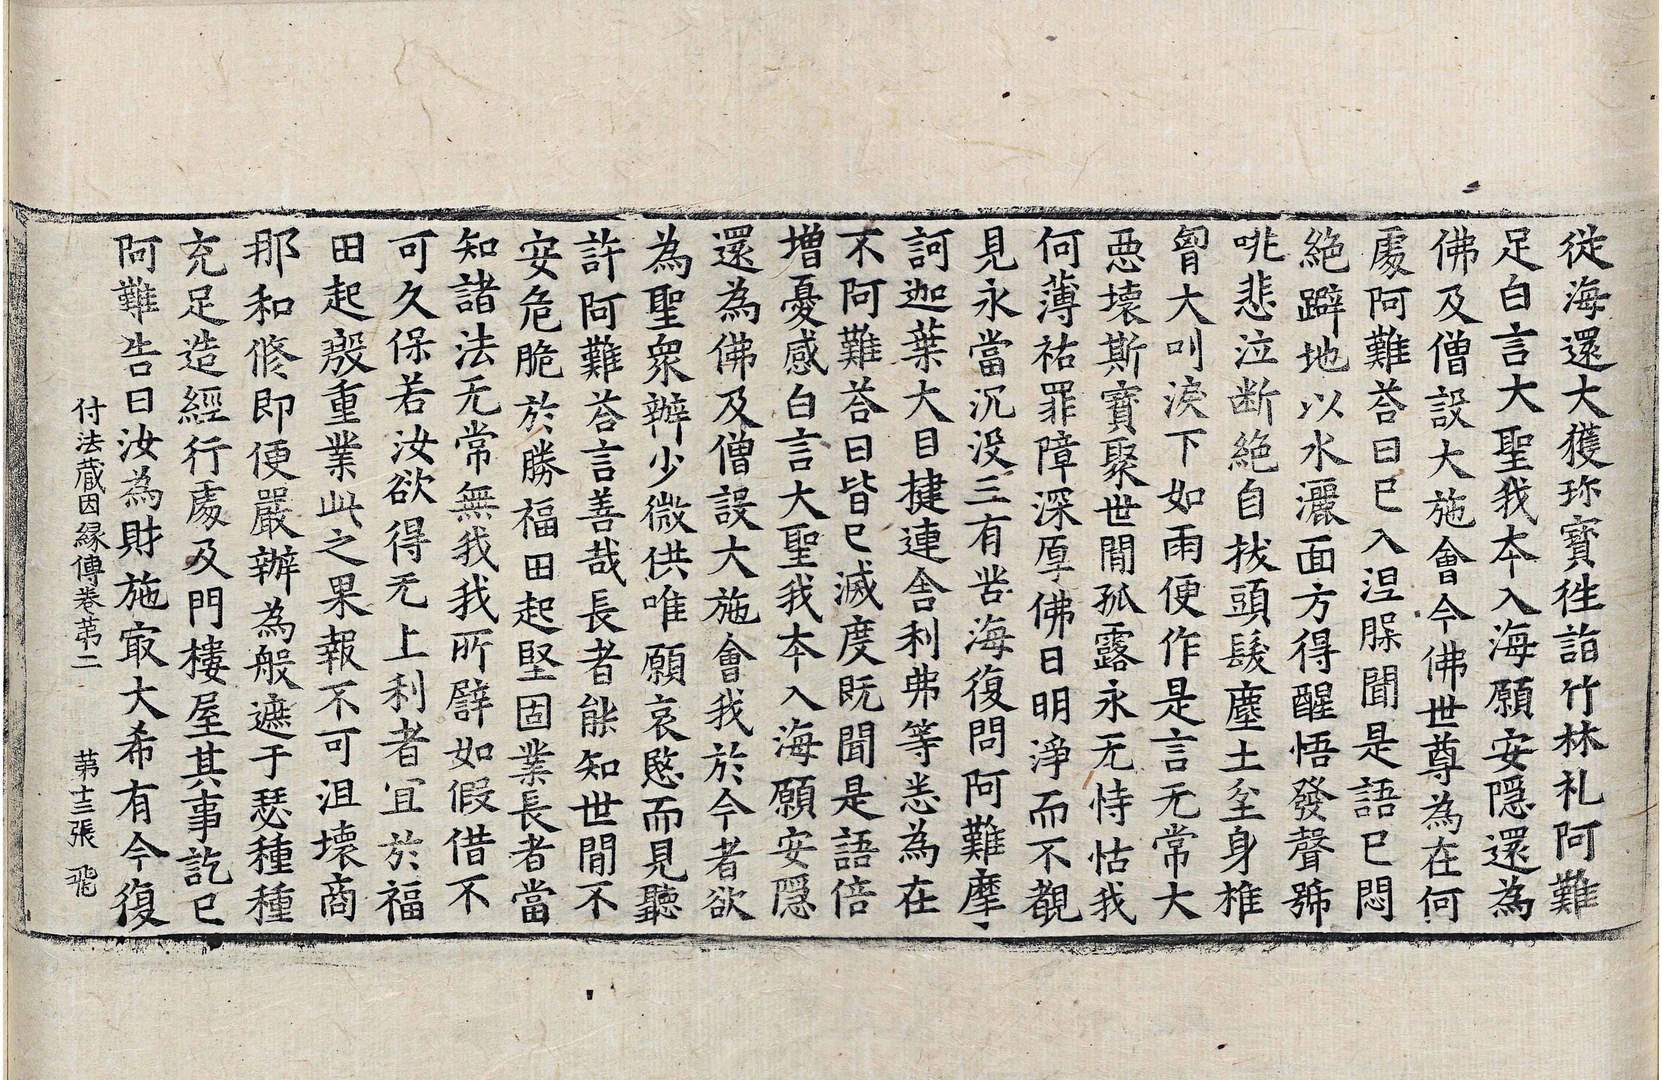 從海還大獲珎寶徃詣竹林礼阿難
足白言大聖我本入海願安隱還為
佛及僧設大施會今佛世尊為在何
處阿難荅曰已入涅脲聞是語已悶
絶躃地以水灑面方得醒悟發聲號
咷悲泣断絶自拔頭髮塵土坌身椎
匈大叫淚下如雨便作是言无常大
惡壞斯寶聚世閒孤露永无恃怙我
何薄祐罪障深厚佛日明淨而不覩
見永當沉没三有苦海復問阿難摩
訶迦葉大目揵連舍利弗等悉為在
不阿難荅曰皆已滅度既聞是語倍
增憂感白言大聖我本入海願安隱
還為佛及僧設大施會我於今者欲
為聖衆辦少微供唯願哀愍而見聽
許阿難荅言善哉長者能知世閒不
安危脆於勝福田起堅固業長者當
知諸法无常無我我所譬如假借不
可久保若汝欲得无上利者宜於福
田起殷重業此之果報不可沮壞商
那和修即便嚴辦為般遮于瑟種種
充足造經行處及門樓屋其事訖已
阿難告曰汝為財施㝡大希有今復
付法藏因縁傳卷苐二 苐十三張 飛